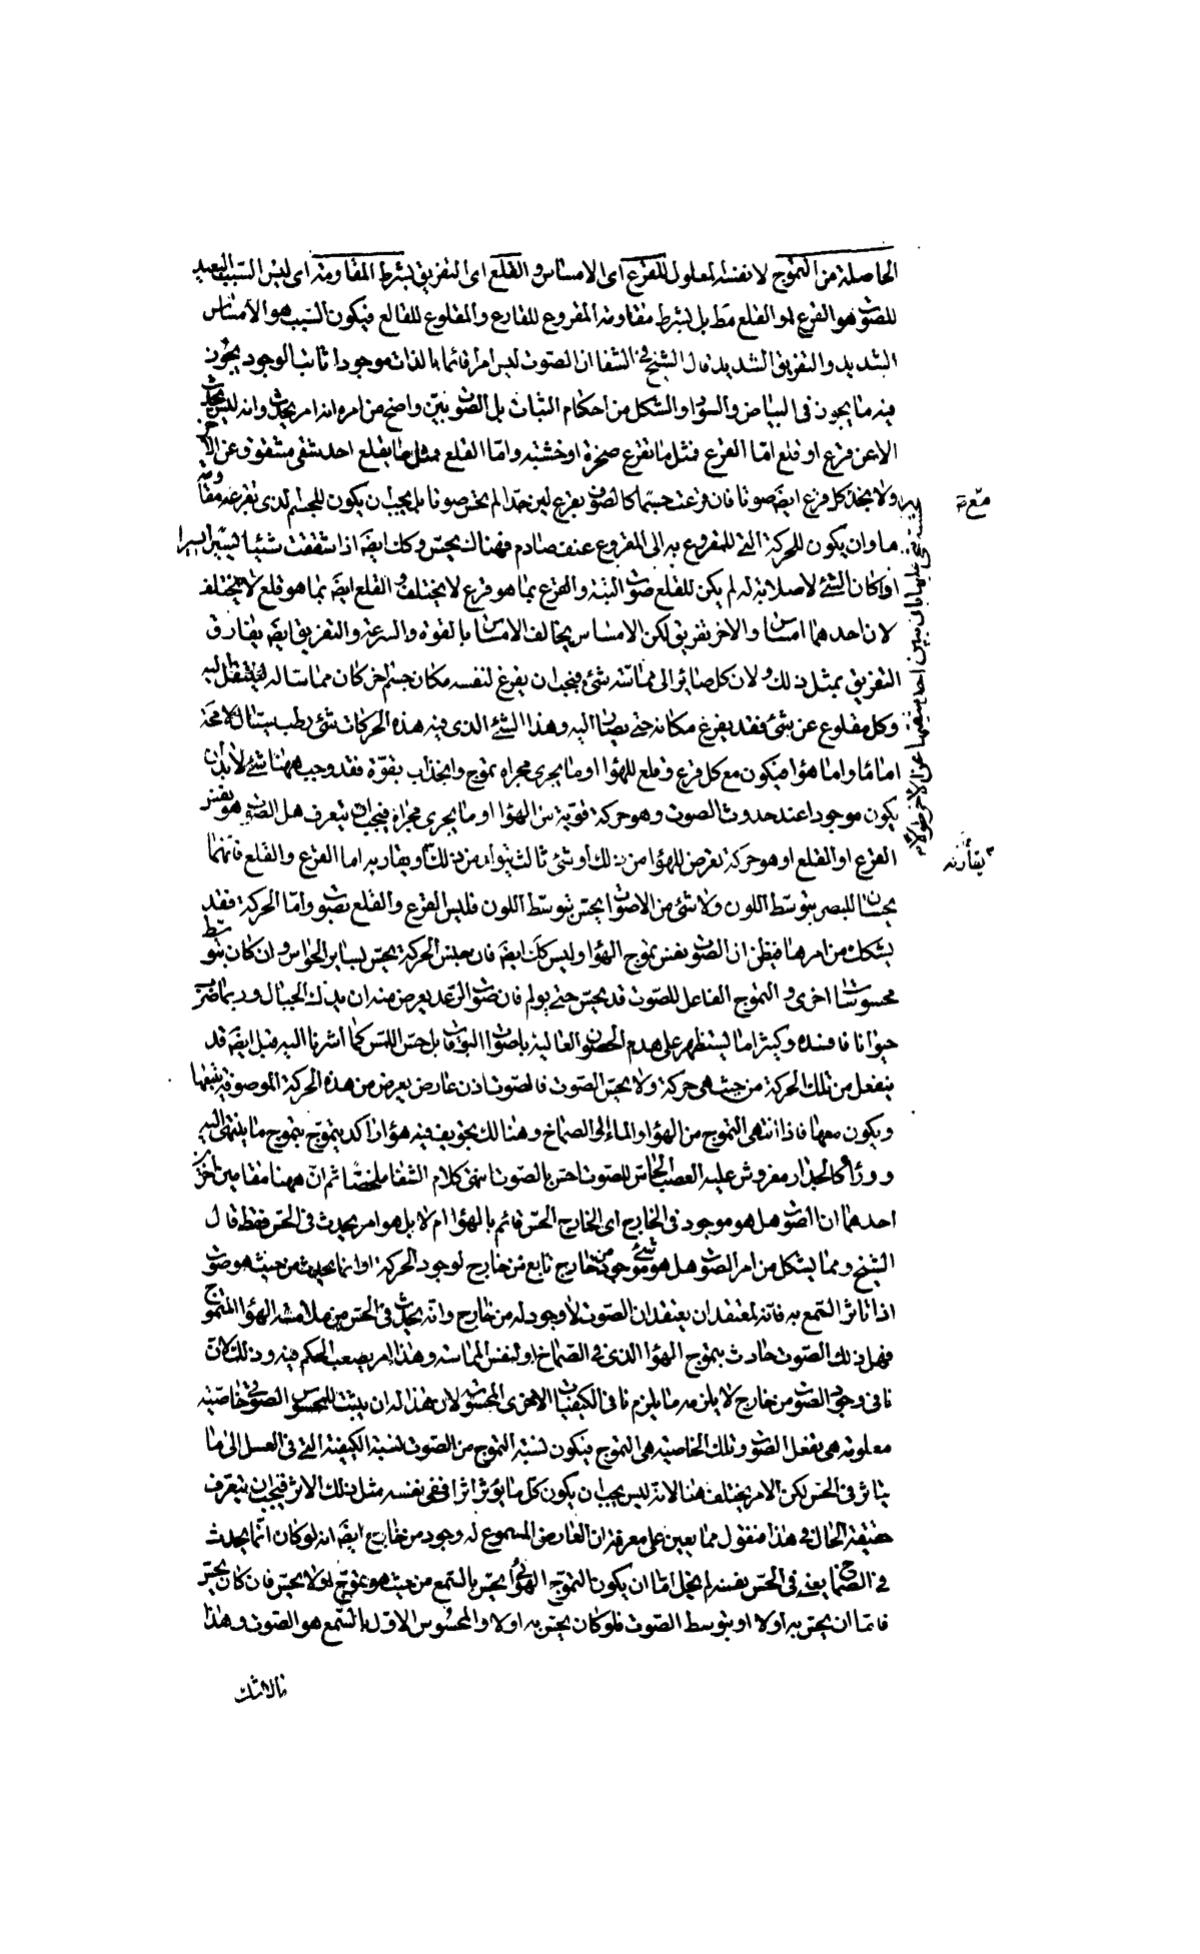 الحاصلة من التموج لا نفسه لمعلول للقرع اى الامساس و القلع اى التفريق بشرط المقاومة اى ليس السبب البعيد
للصوت هو القرع او القلع مط بل بشرط مقاومة المقروع للقارع والمقلوع للقالع فيكون السبب هو الامساس
الشديد والتفريق الشديد قال الشيخ فى الشفا ان الصوت ليس امرا قائما بالذات موجودا ثابت الوجود يجوز
فيه ما يجوز فى البياض والسواد والشكل من احكام الثبات بل الصوت بيّن واضح من امره انه امر يحدث وانه ليس يحدث
الا عن قرع او قلع اما القرع فمثل ما تقرع صخرة او خشبة واما القلع فمثل ما يقلع احد شقى مشقوق عن الاخر
ولا تجد كل قرع ايضه صوتا فان قرعت جسما كالصوف بقرع لين جدا لم تحس صوتا بل يجب ان يكون للجسم الذى تقرعه مقاومة
ما وان يكون للحركة التى للمقروع به الى المقروع عنف صادم فهناك يحس وكك ايضه اذا شققت شيئا يسيرا يسيرا
او كان الشئ لا صلابة له لم يكن للقلع صوت البتة والقرع بما هو قرع لا يختلف والقلع ايضه بما هو قلع لا يختلف
لان احدهما امساس والاخر تفريق لكن الامساس يخالف الامساس بالقوة والسرعة والتفريق ايضه يفارق
التفريق بمثل ذلك ولان كل صائر الى مماسة شئ فيجب ان يفرغ لنفسه مكان جسم اخر كان مماسا له لينتقل اليه
وكل مقلوع عن شئ فقد يفرغ مكانه حتى يصار اليه وهذا الشئ الذى فيه هذه الحركات شئ رطب سيال لا محة
اما ماء واما هواء فيكون مع كل قرع وقلع للهواء او ما يجرى مجراه تموج وانجذاب بقوة فقد وجب ههنا شئ لا بد ان
يكون موجودا عند حدوث الصوت وهو حركة قوية من الهواء او ما يجرى مجراه فيجب ان نتعرف هل الصوت هو نفس
القرع او القلع او هو حركة تعرض للهواء من ذلك او شئ ثالث يتولد من ذلك او يقارنه اما القرع والقلع فانهما
يحسان بالبصر بتوسط اللون ولا شئ من الاصوات يحس بتوسط اللون فليس القرع والقلع بصوت واما الحركة فقد
يشكك من امرها فيظن ان الصوت نفس تموج الهواء وليس كك ايضه فان جنس الحركة يحس بساير الحواس وان كان بتوسط
محسوسات اخرى و التموج الفاعل للصوت قد يحس حتى يولم فان صوت الرعد يعرض منه ان يدك الجبال وربما ضرب
حيوانا فافسده وكثيرا ما يستظهر على هدم الحصون العالية باصوات البوقات بل حس اللمس كما اشرنا اليه قبل ايضه قد
ينفعل من تلك الحركة من حيث هى حركة ولا يحس الصوت فالصوت اذن عارض يعرض من هذه الحركة الموصوفة يتبعها
ويكون معها فاذا انتهى التموج من الهواء او الماء الى الصماخ وهنا لك تجويف فيه هواء راكد يتموج بتموج ما ينتهى اليه
ووراه كالجدار مفروش عليه العصب الحاس للصوت احس بالصوت انتهى كلام الشفا ملخصا ثم ان ههنا مقامين اخرين
احدهما ان الصوت هل هو موجود فى الخارج اى خارج الحس قائم بالهواء ام لا بل هو امر يحدث فى الحس فقط قال
الشيخ ومما يشكل من امر الصوت هل هو شئ موجود من خارج تابع من خارج لوجود الحركة او انما يحدث من حيث هو صوت
اذا تاثر السمع به فانه لمعتقد ان يعتقد ان الصوت لا وجود له من خارج وانه يحدث فى الحس من ملامسة الهواء المتموج
فهل ذلك الصوت حادث بتموج الهواء الذى فى الصماخ او لنفس المماسة وهذا امر يصعب الحكم فيه وذلك لان
نافى وجود الصوت من خارج لا يلزمه ما يلزم نافى الكيفيات الاخرى المحسوسة لان هذا له ان يثبت للمحسوس الصوتى خاصية
معلومة هى تفعل الصوت وتلك الخاصية هى التموج فيكون نسبة التموج من الصوت نسبة الكيفية التى فى العسل الى ما
يتاثر فى الحس لكن الامر يختلف هنا لانه ليس يجب ان يكون كل ما يؤثر اثرا ففى نفسه مثل ذلك الاثر فيجب ان نتعرف
حقيقة الحال فى هذا فنقول مما يعين على معرفة ان العارض المسموع له وجود من خارج ايضه انه لو كان انما يحدث
فى الصماخ يعنى فى الحس نفسه لم يخل اما ان يكون التموج الهوائى يحس بالسمع من حيث هو تموج او لا يحس فان كان يحس
فاما ان يحس به اولا او بتوسط الصوت فلو كان يحس به اولا والمحسوس الاول بالسمع هو الصوت وهذا
يقارنه